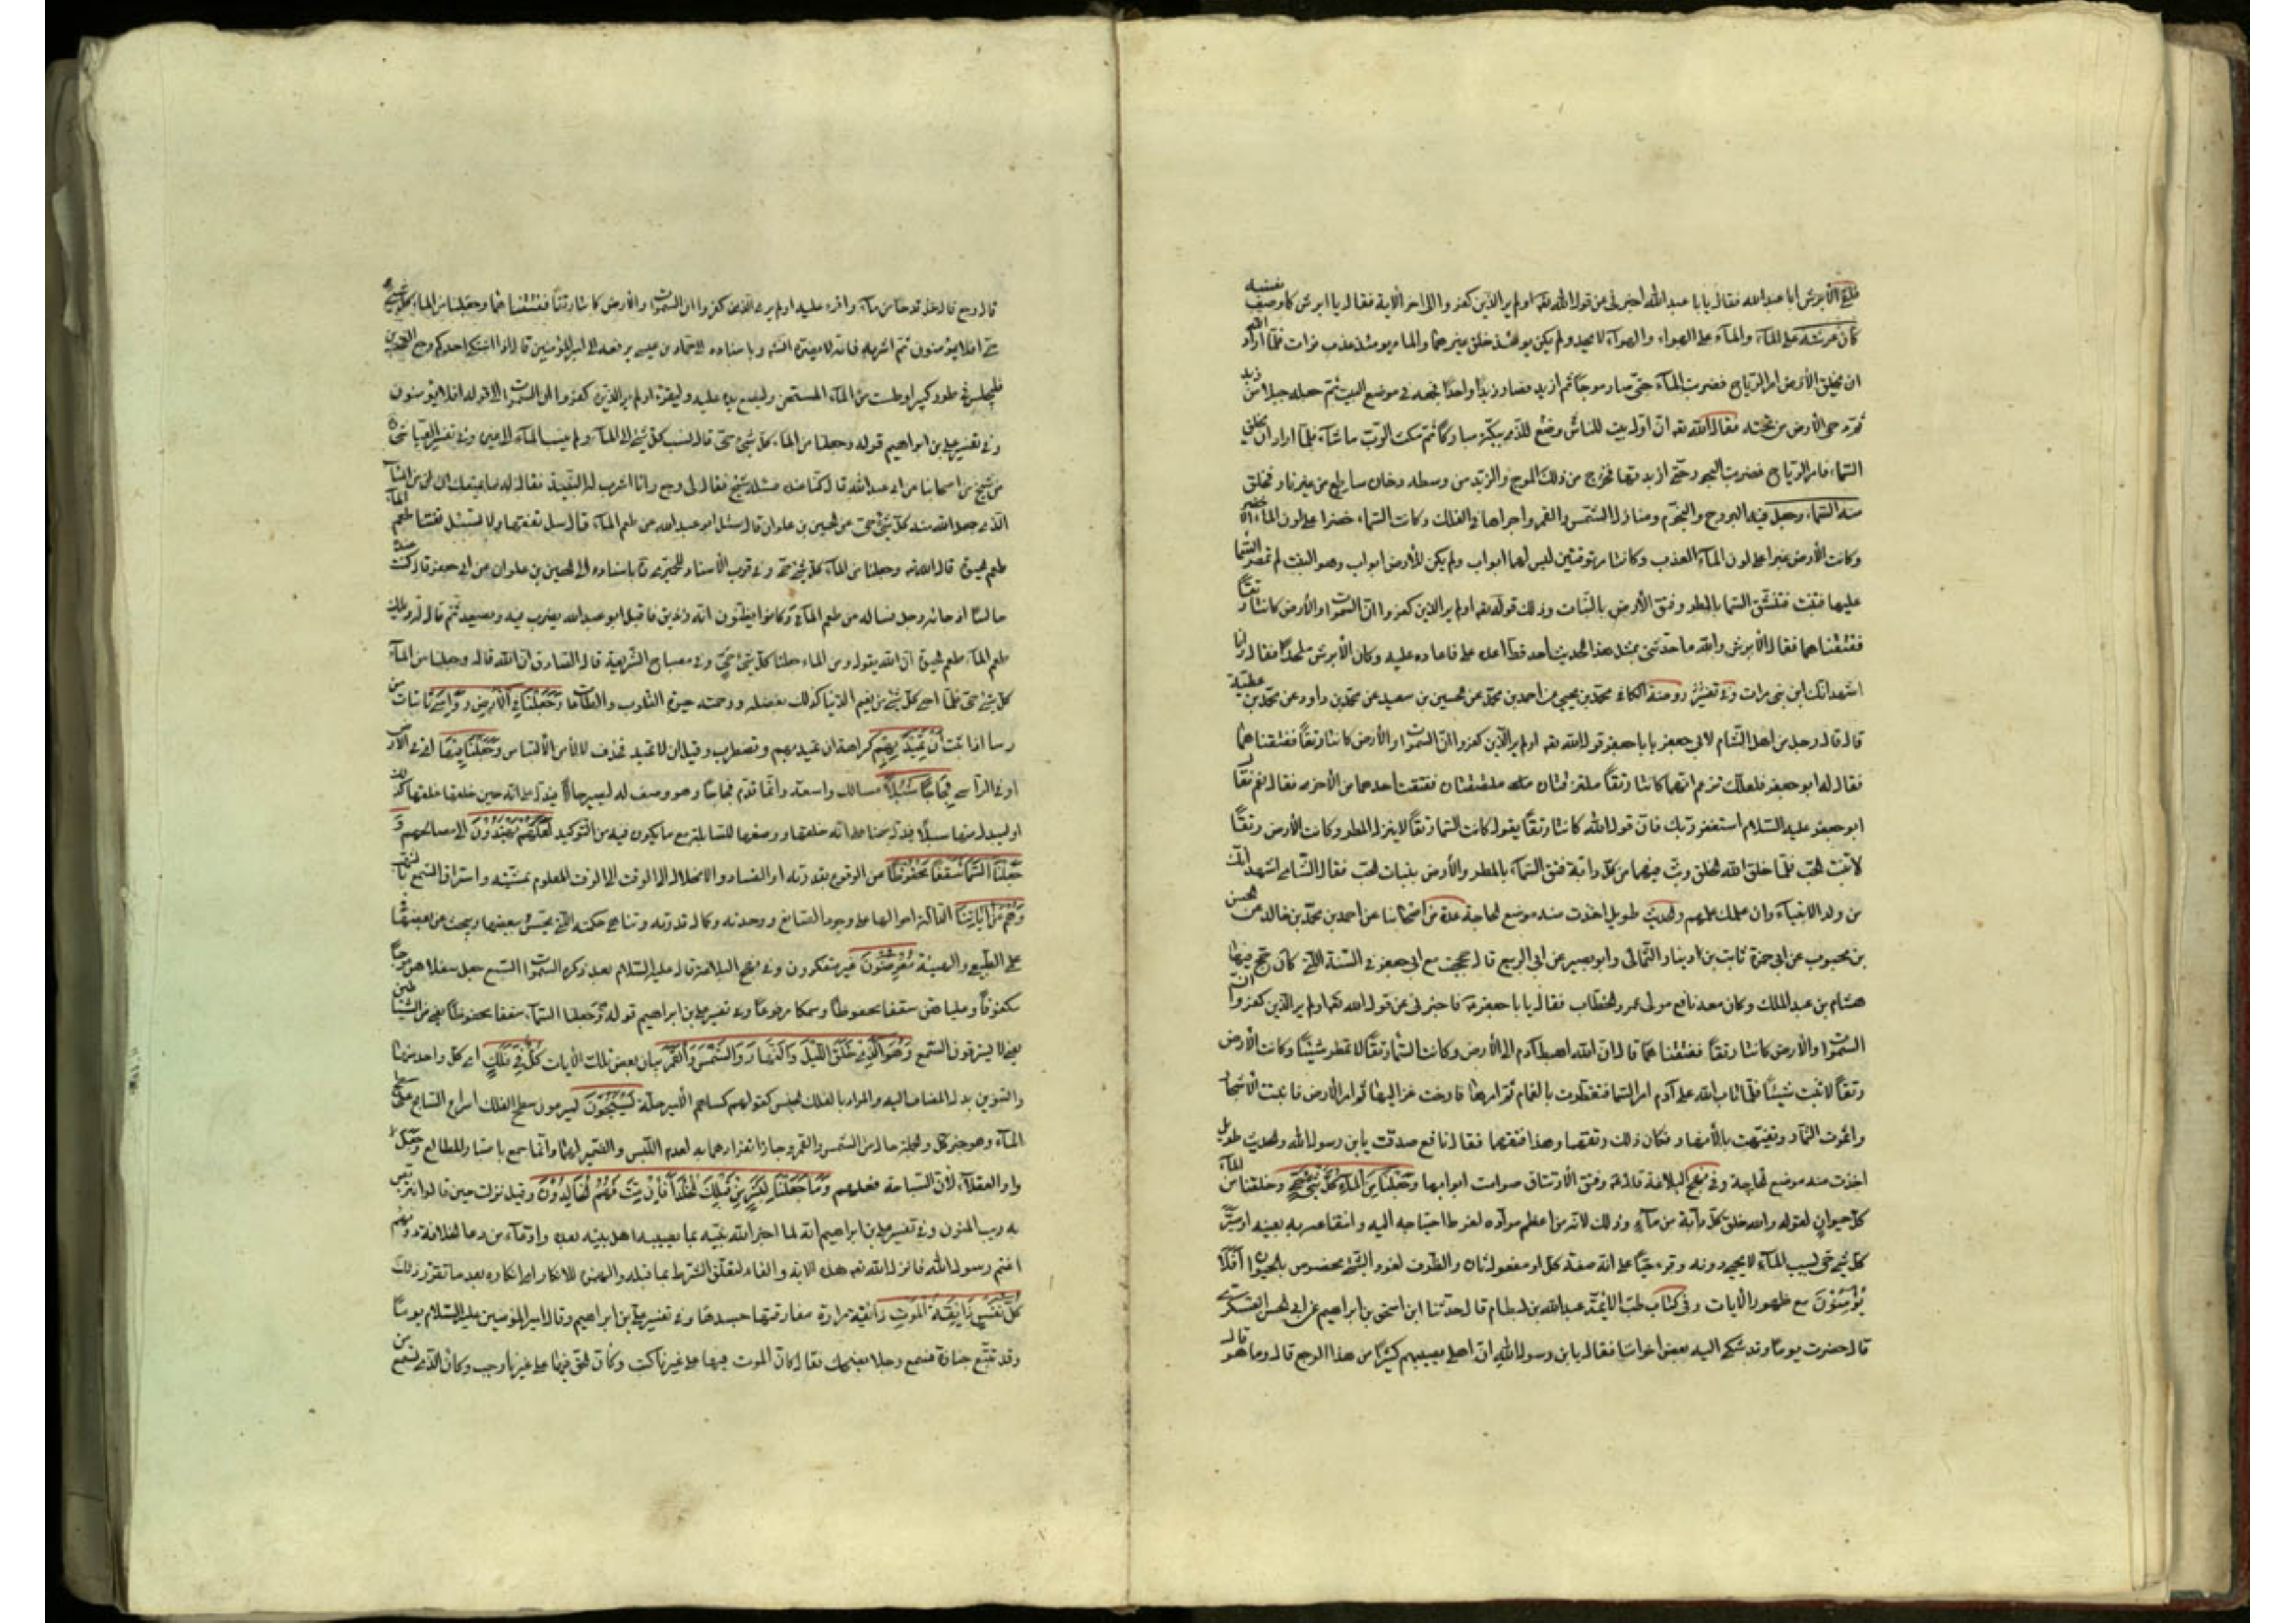 فلقى الأبرش أبا عبد الله فقال يا با عبد الله اخبرنى عن قول الله تعه اولم ير الذين كفروا الى اخر الاية فقال يا ابرش كما وصف نفسه
كان عرشه على المآء والمآء على الهوآء والهوآء لا يحد ولم يكن يومئذ خلق غيرهما والماء يومئذ عذب فرات فلمّا اراد الله
ان يخلق الأرض امر الرّياح فضربت المآء حتّى صار موجًا ثم ازبد فصار زبدًا واحدًا فجمعه فى موضع البيت ثمّ جعله جبلا من زبد
ثمّ دحى الأرض من تحته فقال الله تعه انّ اوّل بيت وضع للنّاس للّذى ببكّة مباركًا ثمّ مكث الربّ ما شآء فلمّا اراد ان يخلق
السّماء فامر الرّياح فضربت البحور حتّى ازبدتها فخرج من ذلك الموج والزّبد من وسطه دخان ساطع من غير نار فخلق
منه السّماء وجعل فيه البروج والنّجوم ومنازل الشّمس والقمر واجراها فى الفلك وكانت السّماء خضرا على لون المآء الأخضر
وكانت الأرض غبرا على لون المآء العذب وكانتا مرتوقتين ليس لهما ابواب ولم يكن للأرض ابواب وهو النبت لم تمطر السّما
عليها فتنبت ففتق السّما بالمطر وفتق الأرض بالنّبات وذلك قوله تعه اولم ير الذين كفروا انّ السّموات والأرض كانتا رتقًا
ففتقناهما فقال الأبرش والله ما حدّثنى بمثل هذا الحديث احد قطّ اعد على فاعاده عليه وكان الأبرش ملحدًا فقال وانا
اشهد انّك ابن نبى مرات وفى تفسير روضة الكافى محمّد بن يحيى عن احمد بن محمّد عن الحسين بن سعيد عن محمّد بن داود عن محمّد بن عطيّة
قال قال رجل من اهل الشّام لابى جعفر يا با جعفر قول الله تعه اولم ير الّذين كفروا انّ السّموات والأرض كانتا رتقًا ففتقناهما
فقال له ابو جعفر فلعلّك تزعم انّهما كانتا رتقًا ملتزقتان ملتصقتان ففتقت احدهما من الأخرى فقال نعم فقال
ابو جعفر عليه السّلام استغفر ربّك فانّ قول الله كانتا رتقًا يقول كانت السّما رتقًا لا ينزل المطر وكانت الأرض رتقًا
لا تنبت الحبّ فلمّا خلق الله الخلق وبثّ فيهما من كلّ دابّة فتق السّمآء بالمطر والأرض بنبات الحبّ فقال الشّامى اشهد انّك
من ولد الانبيآء وانّ علمك علمهم والحديث طويل اخذت منه موضع الحاجة عدّة من اصحابنا عن احمد بن محمّد بن خالد عن الحسن
بن محبوب عن ابى حمزة ثابت بن دينار الثّمالى وابو بصير عن ابى الربيع قال حججت مع ابى جعفر فى السّنة الّتى كان حجّ فيها
هشام بن عبد الملك وكان معه نافع مولى عمر بن الخطّاب فقال يا با جعفر فاخبرنى عن قول الله تعه اولم ير الّذين كفروا انّ
السّموات والأرض كانتا رتقًا ففتقناهما قال انّ الله اهبط آدم الى الأرض وكانت السّما رتقًا لا تمطر شيئًا وكانت الأرض
رتقًا لا تنبت شيئًا فلمّا تاب الله على آدم امر السّما فتفطّرت بالغمام ثمّ امرها فارخت عزاليها ثمّ امر الأرض فانبتت الأشجار
واثمرت الثّمار وتفيّهت بالأنهار فكان ذلك رتقها وهذا فتقها فقال نافع صدقت يا بن رسول الله والحديث طويل
اخذت منه موضع الحاجة وفى نهج البلاغة قال وفتق بعد الارتتاق صوامت ابوابها وَجَعَلْنَا مِنَ الْمَآءِ كُلَّ شَيْءٍ حَيٍّ وخلقنا من المآء
كلّ حيوان لقوله والله خلق كلّ دابّة من مآء وذلك لانّه من اعظم موادّه لفرط احتياجه اليه وانتفاعه به بعينه او صيّر
كلّ شىء حىّ بسبب المآء لا يحيى دونه وقرء حيًّا على انّه صفة كلّ او مفعول ثان والظّرف لغو والشّىء مخصوص بالحيوان اَفَلَا
يُؤْمِنُونَ مع ظهور الآيات وفى كتاب طبّ الائمّة عبد الله بن بسطام قال حدّثنا ابن اسحق بن ابراهيم عن ابى الحسن العسكرى
قال حضرته يومًا وقد شكى اليه بعض اخواننا فقال يا بن رسول الله انّ اهلى يصيبهم كثيرًا من هذا الوجع قال وما هو قال
قال وجع قال خذ قدحًا من مآء واقرء عليه اولم ير الّذين كفروا انّ السّموات والأرض كانتا رتقًا ففتقناهما وجعلنا من الماء كلّ شىء
حىّ افلا يؤمنون ثم اشربه فانّه لا وباسناده الى حمّاد بن عيسى يرفعه الى امير المؤمنين قال اذا اشتكى احدكم وجع الفخذين
فليجلس فى طور كبير او طست من المآء المسخن وليضع يده عليه وليقرء اولم ير الّذين كفروا انّ السّموات الى قوله افلا يؤمنون
وفى تفسير على بن ابراهيم قوله وجعلنا من الماء كلّ شىء حىّ قال نسب كلّ شىء الى المآء ولم ينسب المآء الى غيره وفى تفسير العيّاشى
عن شيخ من اصحابنا عن ابى عبد الله قال كنّا عنده فسئله شيخ فقال لى وجع وانا اشرب له النّبيذ فقال له ما يمنعك من المآء
الّذى جعل الله منه كلّ شىء حىّ عن الحسين بن علوان قال سئل ابو عبد الله عن طعم المآء قال سل تفقّها ولا تسئل تعنّتا طعم المآء
طعم الحيوة قال الله تعه وجعلنا من المآء كلّ شىء حىّ وفى قرب الأسناد للحميرى باسناده الى الحسين بن علوان عن جعفر قال كنت عنده
جالسًا اذ جائه رجل فساله عن طعم المآء وكانوا يظنّون انّه زنديق فاقبل ابو عبد الله يضرب فيه ويصعد ثمّ قال له ويلك
طعم المآء طعم الحيوة انّ الله يقول ومن الماء جعلنا كلّ شىء حىّ وفى مصباح الشّريعة قال الصّادق انّ الله قال وجعلنا من المآء
كلّ شىء حىّ فلمّا احى كلّ شىء من نعيم الدّنيا كذلك بفضله ورحمته حيوة القلوب والطّاعات وَجَعَلْنَا فِي الْاَرْضِ رَوَاسِيَ ثابتات من
رسا اذا ثبت اَنْ تَمِيدَ بِهِمْ كراهة ان تميد بهم وتضطرب وقيل ان لا تميد فحذف لا لأمن الألتباس وَجَعَلْنَا فِيهَا اى فى الأرض
او فى الرّواسى فِجَاجًا سُبُلًا مسالك واسعة وانّما قدّم فجاجا وهو وصف له ليصير حالًا فيدلّ على انّه حين خلقها خلقها كذلك
او ليبدل منها سبلًا فيدلّ ضمنا على انّه خلقها ووسعها للسّابلة مع ما يكون فيه من التّوكيد لَعَلَّهُمْ يَهْتَدُونَ الى مصالحهم وَ
جَعَلْنَا السَّمَآءَ سَقْفًا مَحْفُوظًا من الوقوع بقدرته او الفساد والانحلال الى الوقت المعلوم بمشيّته واستراق السّمع بالشّهب
وَهُمْ عَنْ اٰيَاتِهَا الدّالّة احوالها على وجود الصّانع ووحدته وكمال قدرته وتناهى حكمته الّتى يحسّ ببعضها ويبحث عن بعضها فى
علم الطّبيعى والهيئة مُعْرِضُونَ غير متفكّرون وفى نهج البلاغة قال عليه السّلام بعد ذكره السّموات السّبع جعل سفلاهنّ موجًا
مكفوفًا وعلياهنّ سقفا محفوظا وسمكا مرفوعًا وفى تفسير على بن ابراهيم قوله وَجَعَلْنَا السّمآء سقفا محفوظًا يعنى من الشّياطين
يعنى لا يسترقون السّمع وَهُوَ الَّذِي خَلَقَ اللَّيْلَ وَالنَّهَارَ وَالشَّمْسَ وَالْقَمَرَ بيان لبعض تلك الآيات كُلٌّ فِي فَلَكٍ اى كلّ واحد منهما
والتنوين بدل المضاف اليه والمراد بالفلك الجنس كقولهم كساهم الأمير حلّة يَسْبَحُونَ يسرعون على سطح الفلك اسراع السّابح على سطح
المآء وهو خبر كلّ والجملة حال من الشّمس والقمر وجاز انفرادهما به لعدم اللّبس والضّمير لهما وانّما جمع باعتبار المطالع وجعل
واو العقلآء لأنّ السّباحة فعلهم وَمَا جَعَلْنَا لِبَشَرٍ مِنْ قَبْلِكَ الْخُلْدَ اَفَاِنْ مِتَّ فَهُمُ الْخَالِدُونَ وقيل نزلت حين قالوا نتربّص
به ريب المنون وفى تفسير على بن ابراهيم انّه لما اخبر الله نبيّه بما يصيب اهل بيته بعده وادّعآء من دعا الخلافة دونهم
اغتم رسول الله فانزل الله تعه هذه الاية والفاء لتعلّق الشّرط بما قبله والهمزة للانكار اى انكاره بعد ما تقرّر ذلك
كُلُّ نَفْسٍ ذَائِقَةُ الْمَوْتِ ذائقة مرارة مفارقتها جسدها وفى تفسير على بن ابراهيم وقال امير المؤمنين عليه السّلام يومًا
وقد تبع جنازة فسمع رجلا يضحك فقال كان الموت فيها على غيرنا كتب وكان الحقّ فيها على غيرنا وجب وكان الّذى نسمع من